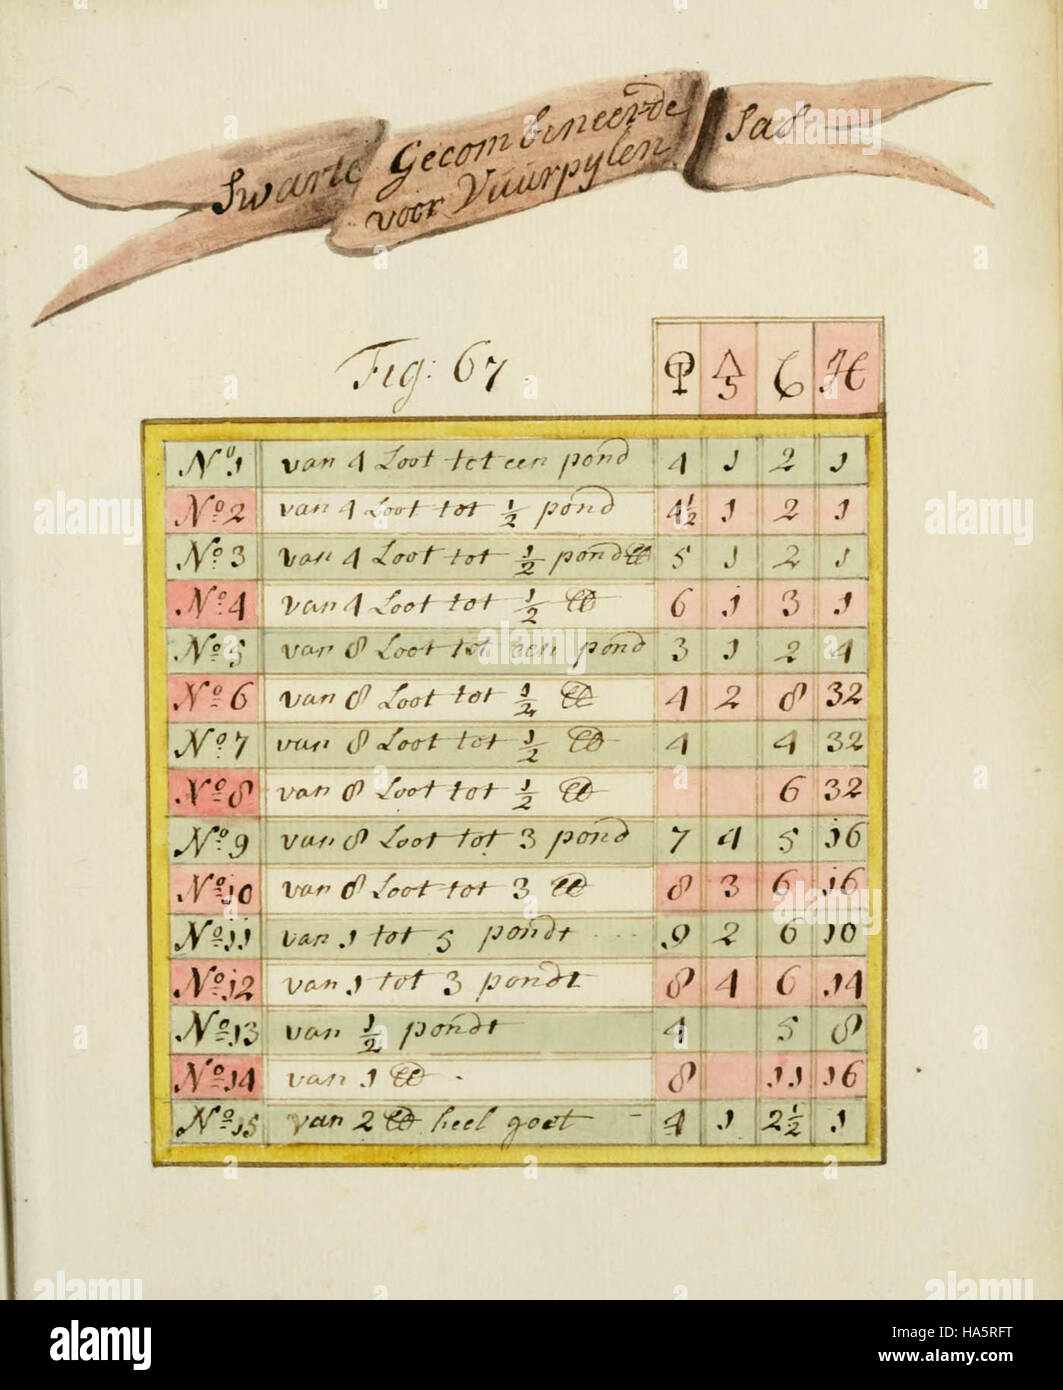 Swarte Gecombineerde Sas
voor Vuurpylen
Fig: 67
No 1 van 4 Loot tot een pond 4 1 2 1
No 2 van 4 Loot tot 1/2 pond 4 1/2 1 2 1
No 3 van 4 Loot tot 1/2 pond 5 1 2 1
No 4 van 4 Loot tot 1/2 ℔ 6 1 3 1
No 5 van 8 Loot tot een pond 3 1 2 4
No 6 van 8 Loot tot 1/2 ℔ 4 2 8 32
No 7 van 8 Loot tot 1/2 ℔ 4 4 32
No 8 van 8 Loot tot 1/2 ℔ 6 32
No 9 van 8 Loot tot 3 pond 7 4 5 16
No 10 van 8 Loot tot 3 ℔ 8 3 6 16
No 11 van 1 tot 5 pondt 9 2 6 10
No 12 van 1 tot 3 pondt 8 4 6 14
No 13 van 1/2 pondt 4 5 8
No 14 van 1 ℔ . 8 11 16
No 15 van 2 ℔ heel goet - 4 1 2 1/2 1
alamy
Image ID: HA5RFT
www.alamy.com